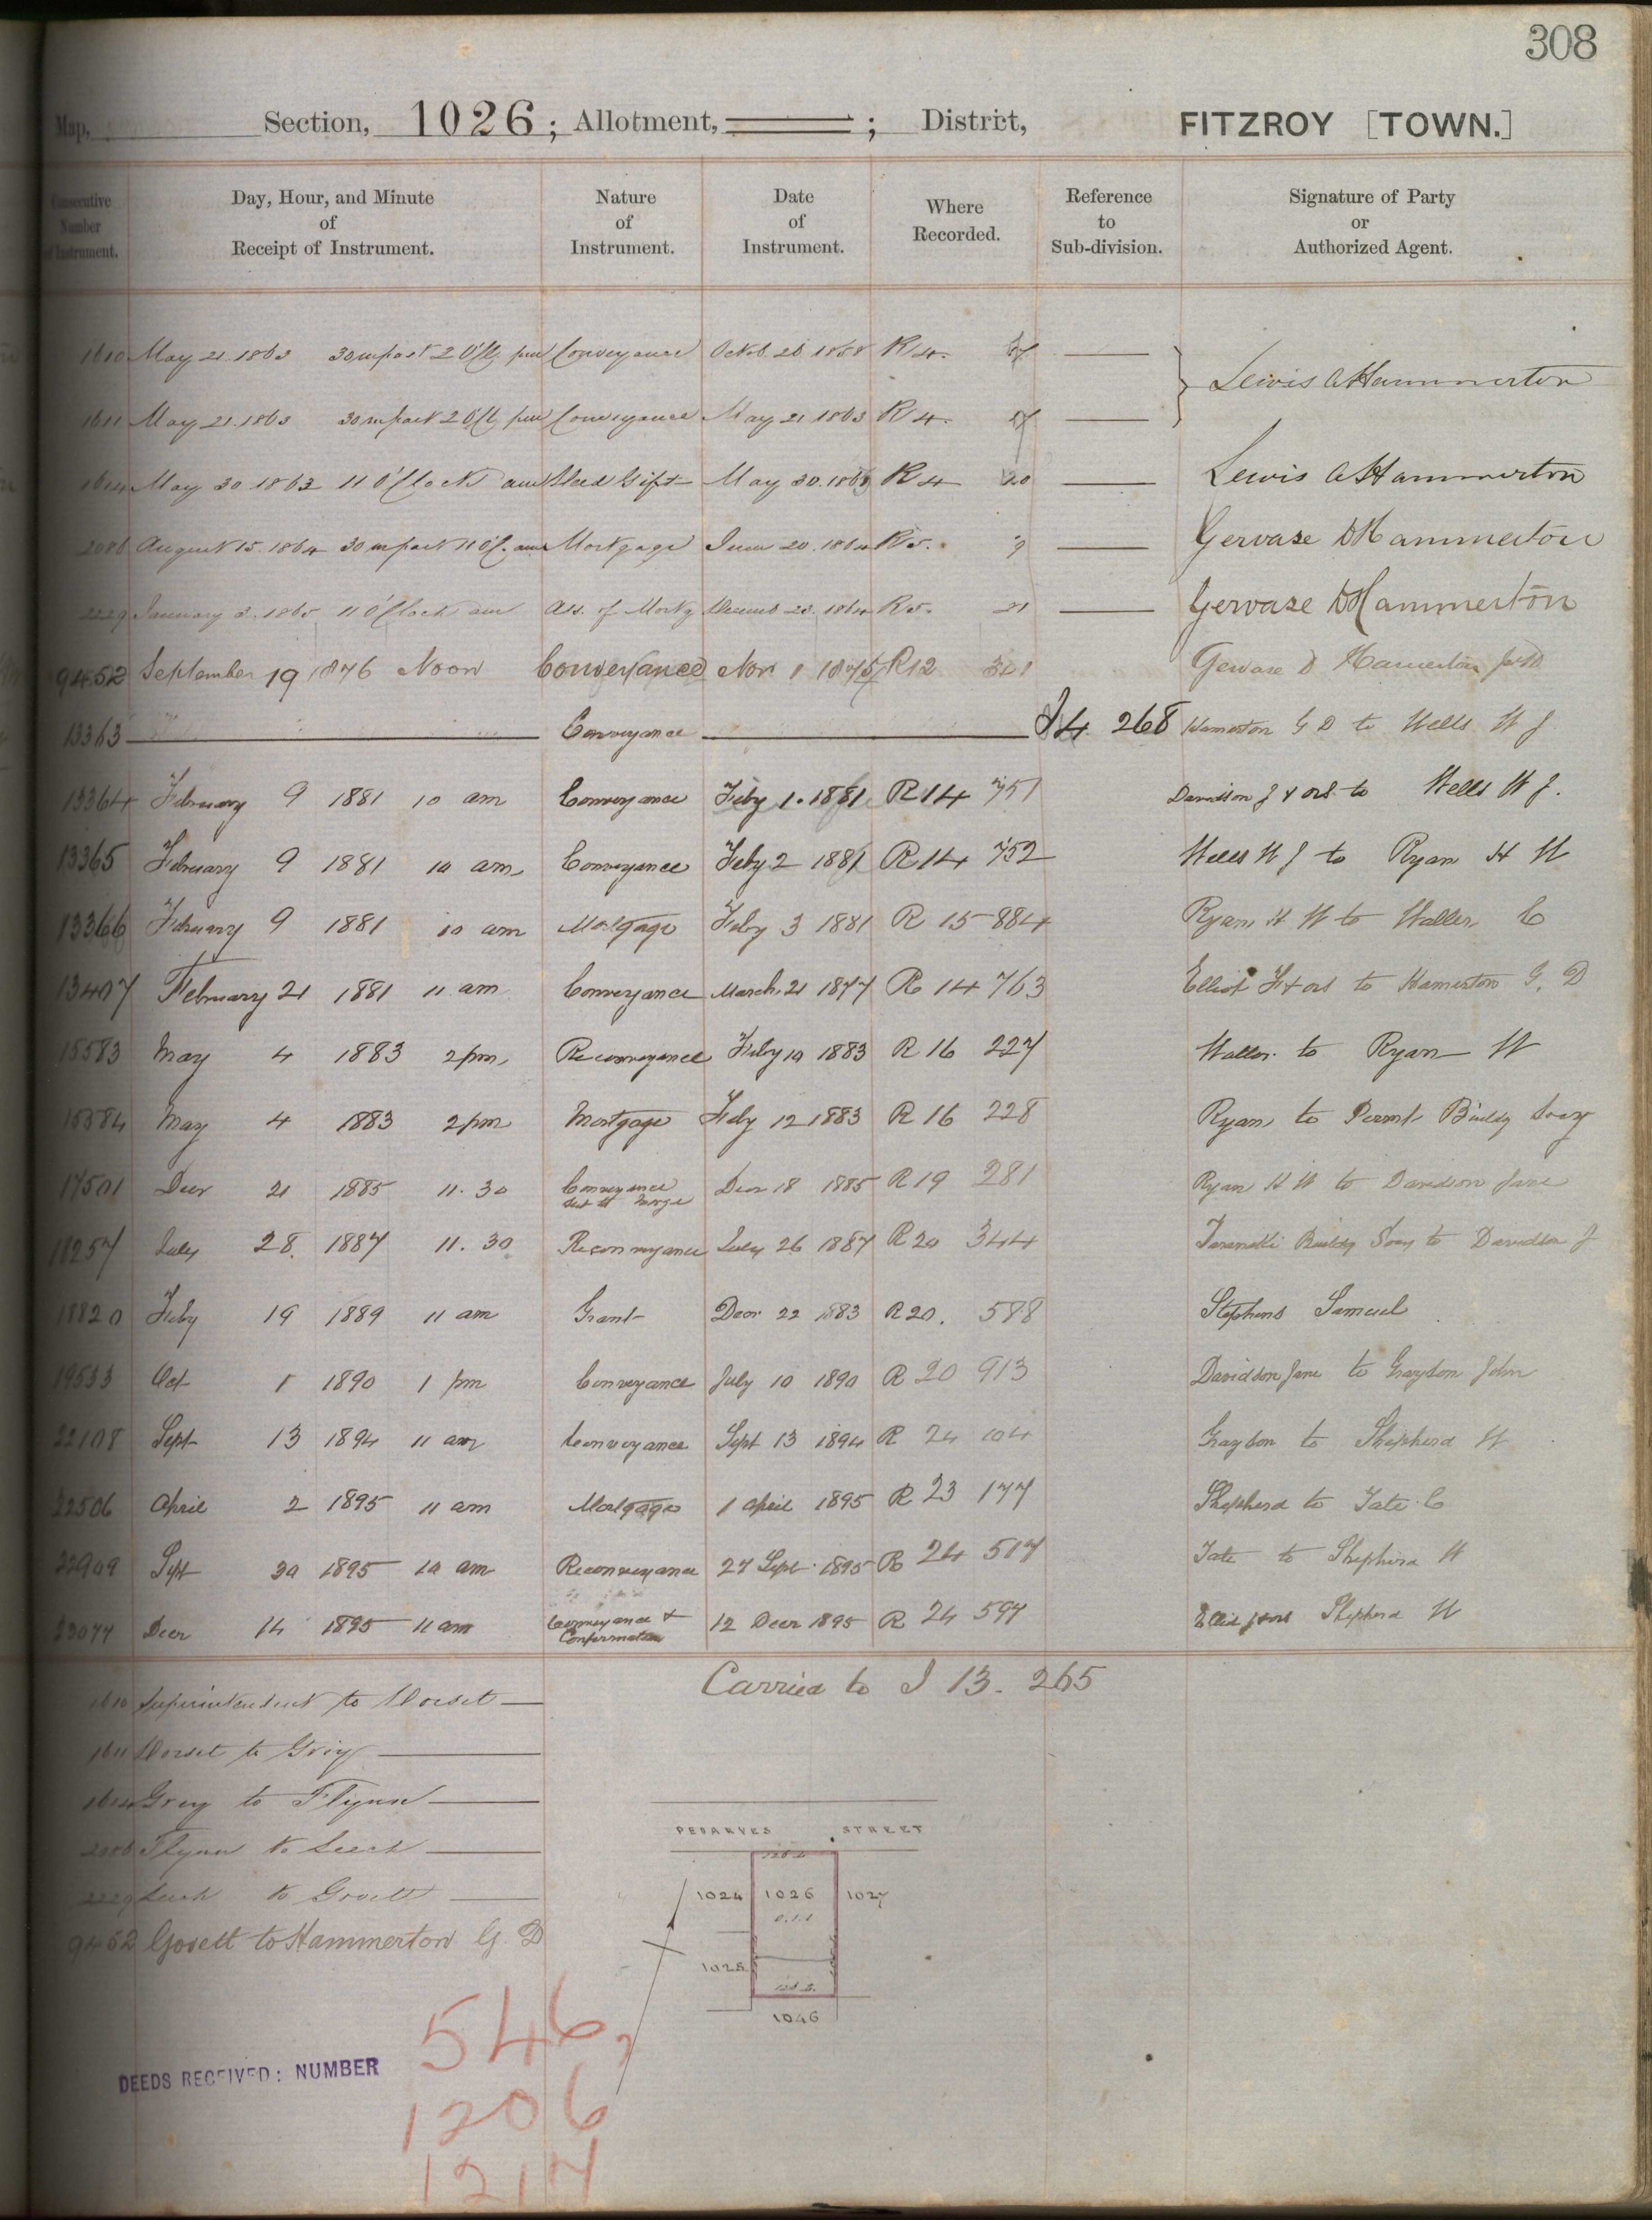 308
Map, Section, 1026; Allotment, ; District, FITZROY [TOWN.]
Consecutive Number of Instrument.
Day, Hour, and Minute of Receipt of Instrument.
Nature of Instrument.
Date of Instrument.
Where Recorded.
Reference to Sub-division.
Signature of Party or Authorized Agent.
1610 May 21. 1863 30 m past 2 O'Cl. pm Conveyance Octob. 28 R 4.
Lewis A Hammerton
1611 May 21. 1863 30 m past 2 O'Cl. pm Conveyance May 21 1863 R 4.
1614 May 30 1863 11 O'Clock am Deed Gift May 30. 1863 R 4 Lewis A Hammerton
2086 August 15. 1864 30 m past 11 O'C. am Mortgage June 20. 1864 R 5. 9 Gervase D Hammerton
2229 January 3. 1865 11 O'Clock am Ass. of Mortg Decemb 23. 1864 R 5. 21 Gervase D Hammerton
9452 September 19 1876 Noon Conveyance Nov 1 1875 R 12 321 Gervase D Hamerton
13363 Conveyance I 4 268 Hamerton G D to Wells W J
13364 February 9 1881 10 am Conveyance Feby 1. 1881 R 14 751 Davidson J & ors to Wells W J.
13365 February 9 1881 10 am Conveyance Feby 2 1881 R 14 752 Wells W J to Ryan H W
13366 February 9 1881 10 am Mortgage Feby 3 1881 R 15 884 Ryan H W to Waller C
13407 February 21 1881 11 am Conveyance March 21 1877 R 14 763 Elliot F & ors to Hamerton G. D
15583 May 4 1883 2 pm Reconveyance Feby 10 1883 R 16 227 Waller to Ryan W
15584 May 4 1883 2 pm Mortgage Feby 12 1883 R 16 228 Ryan to Permt Buildg Socy
17501 Decr 21 1885 11.30 Conveyance Decr 18 1885 R 19 281 Ryan H W to Davidson Jane
18257 July 28. 1887 11.30 Reconveyance July 26 1887 R 20 344 Taranaki Buildg Socy to Davidson J
18820 Feby 19 1889 11 am Grant Decr 22 1883 R 20. 588 Stephens Samuel
19533 Oct 1 1890 1 pm Conveyance July 10 1890 R 20 913 Davidson Jane to Grayson John
22108 Sept 13 1894 11 am Conveyance Sept 13 1894 R 24 104 Grayson to Shepherd W
22506 April 2 1895 11 am Mortgage 1 April 1895 R 23 177 Shepherd to Tate C
22909 Sept 30 1895 10 am Reconveyance 27 Sept 1895 R 24 517 Tate to Shepherd W
23077 Decr 14 1895 11 am Conveyance & Confirmation 12 Decr 1895 R 24 597 Shepherd W
Carried to I 13. 265
1610 Superintendent to Dorset
1611 Dorset to Grey
1614 Grey to Flynn
2086 Flynn to Leech
2229 Leech to Govett
9452 Govett to Hammerton G. D
PENDARVES STREET
1024 1026 1027
0.1.1
1025
1046
DEEDS RECEIVED: NUMBER
546,
1206
1217